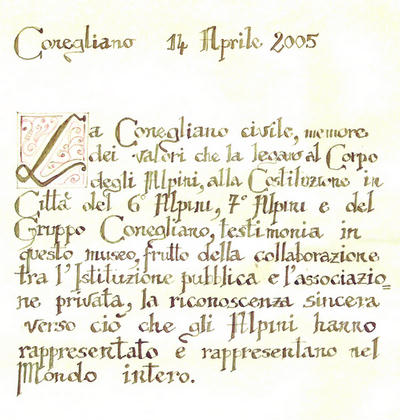 Conegliano 14 Aprile 2005
La Conegliano civile, memore
dei valori che la legano al Corpo
degli Alpini, alla Costituzione in
Città del 6° Alpini, 7° Alpini e del
Gruppo Conegliano, testimonia in
questo museo, frutto della collaborazione
tra l'Istituzione pubblica e l'associazio=
ne privata, la riconoscenza sincera
verso ciò che gli Alpini hanno
rappresentato e rappresentano nel
Mondo intero.